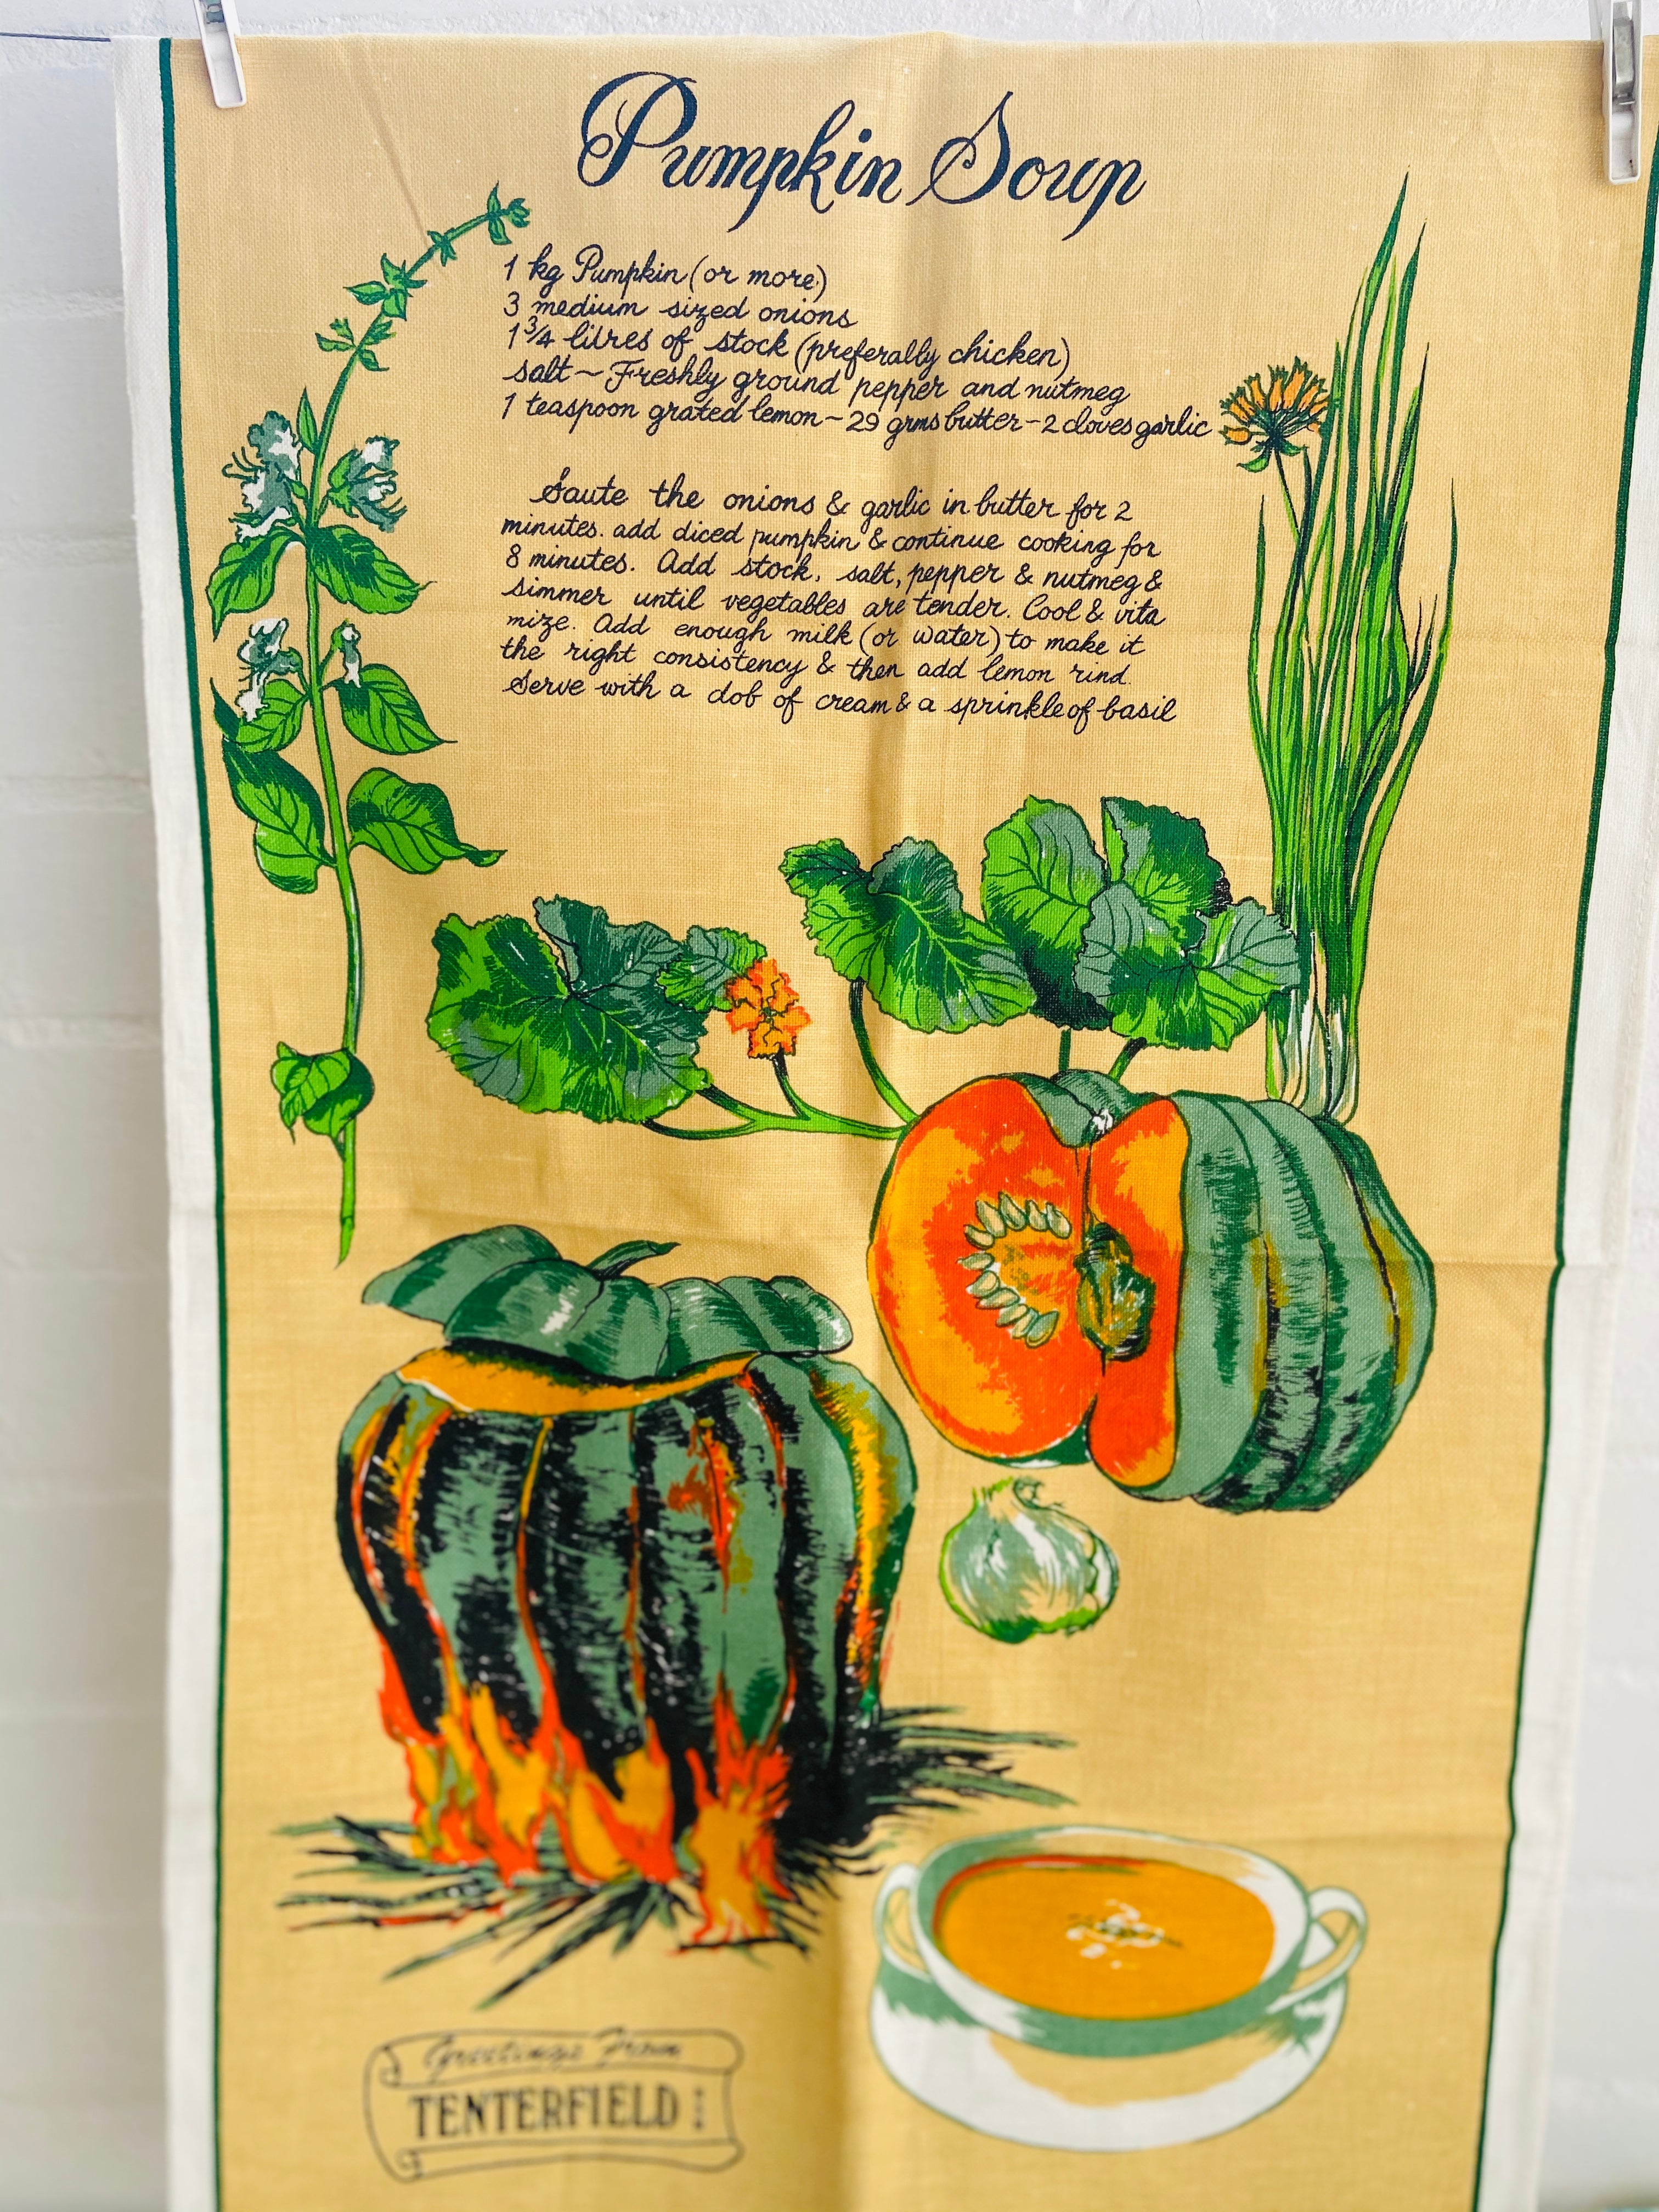 Pumpkin Soup
1 kg Pumpkin (or more)
3 medium sized onions
1 3/4 litres of stock (preferally chicken)
salt ~ Freshly ground pepper and nutmeg
1 teaspoon grated lemon ~ 29 grms butter - 2 cloves garlic
Saute the onions & garlic in butter for 2
minutes. add diced pumpkin & continue cooking for
8 minutes. Add stock, salt, pepper & nutmeg &
simmer until vegetables are tender. Cool & vita
mize. Add enough milk (or water) to make it
the right consistency & then add lemon rind.
Serve with a dob of cream & a sprinkle of basil
Greetings From
TENTERFIELD